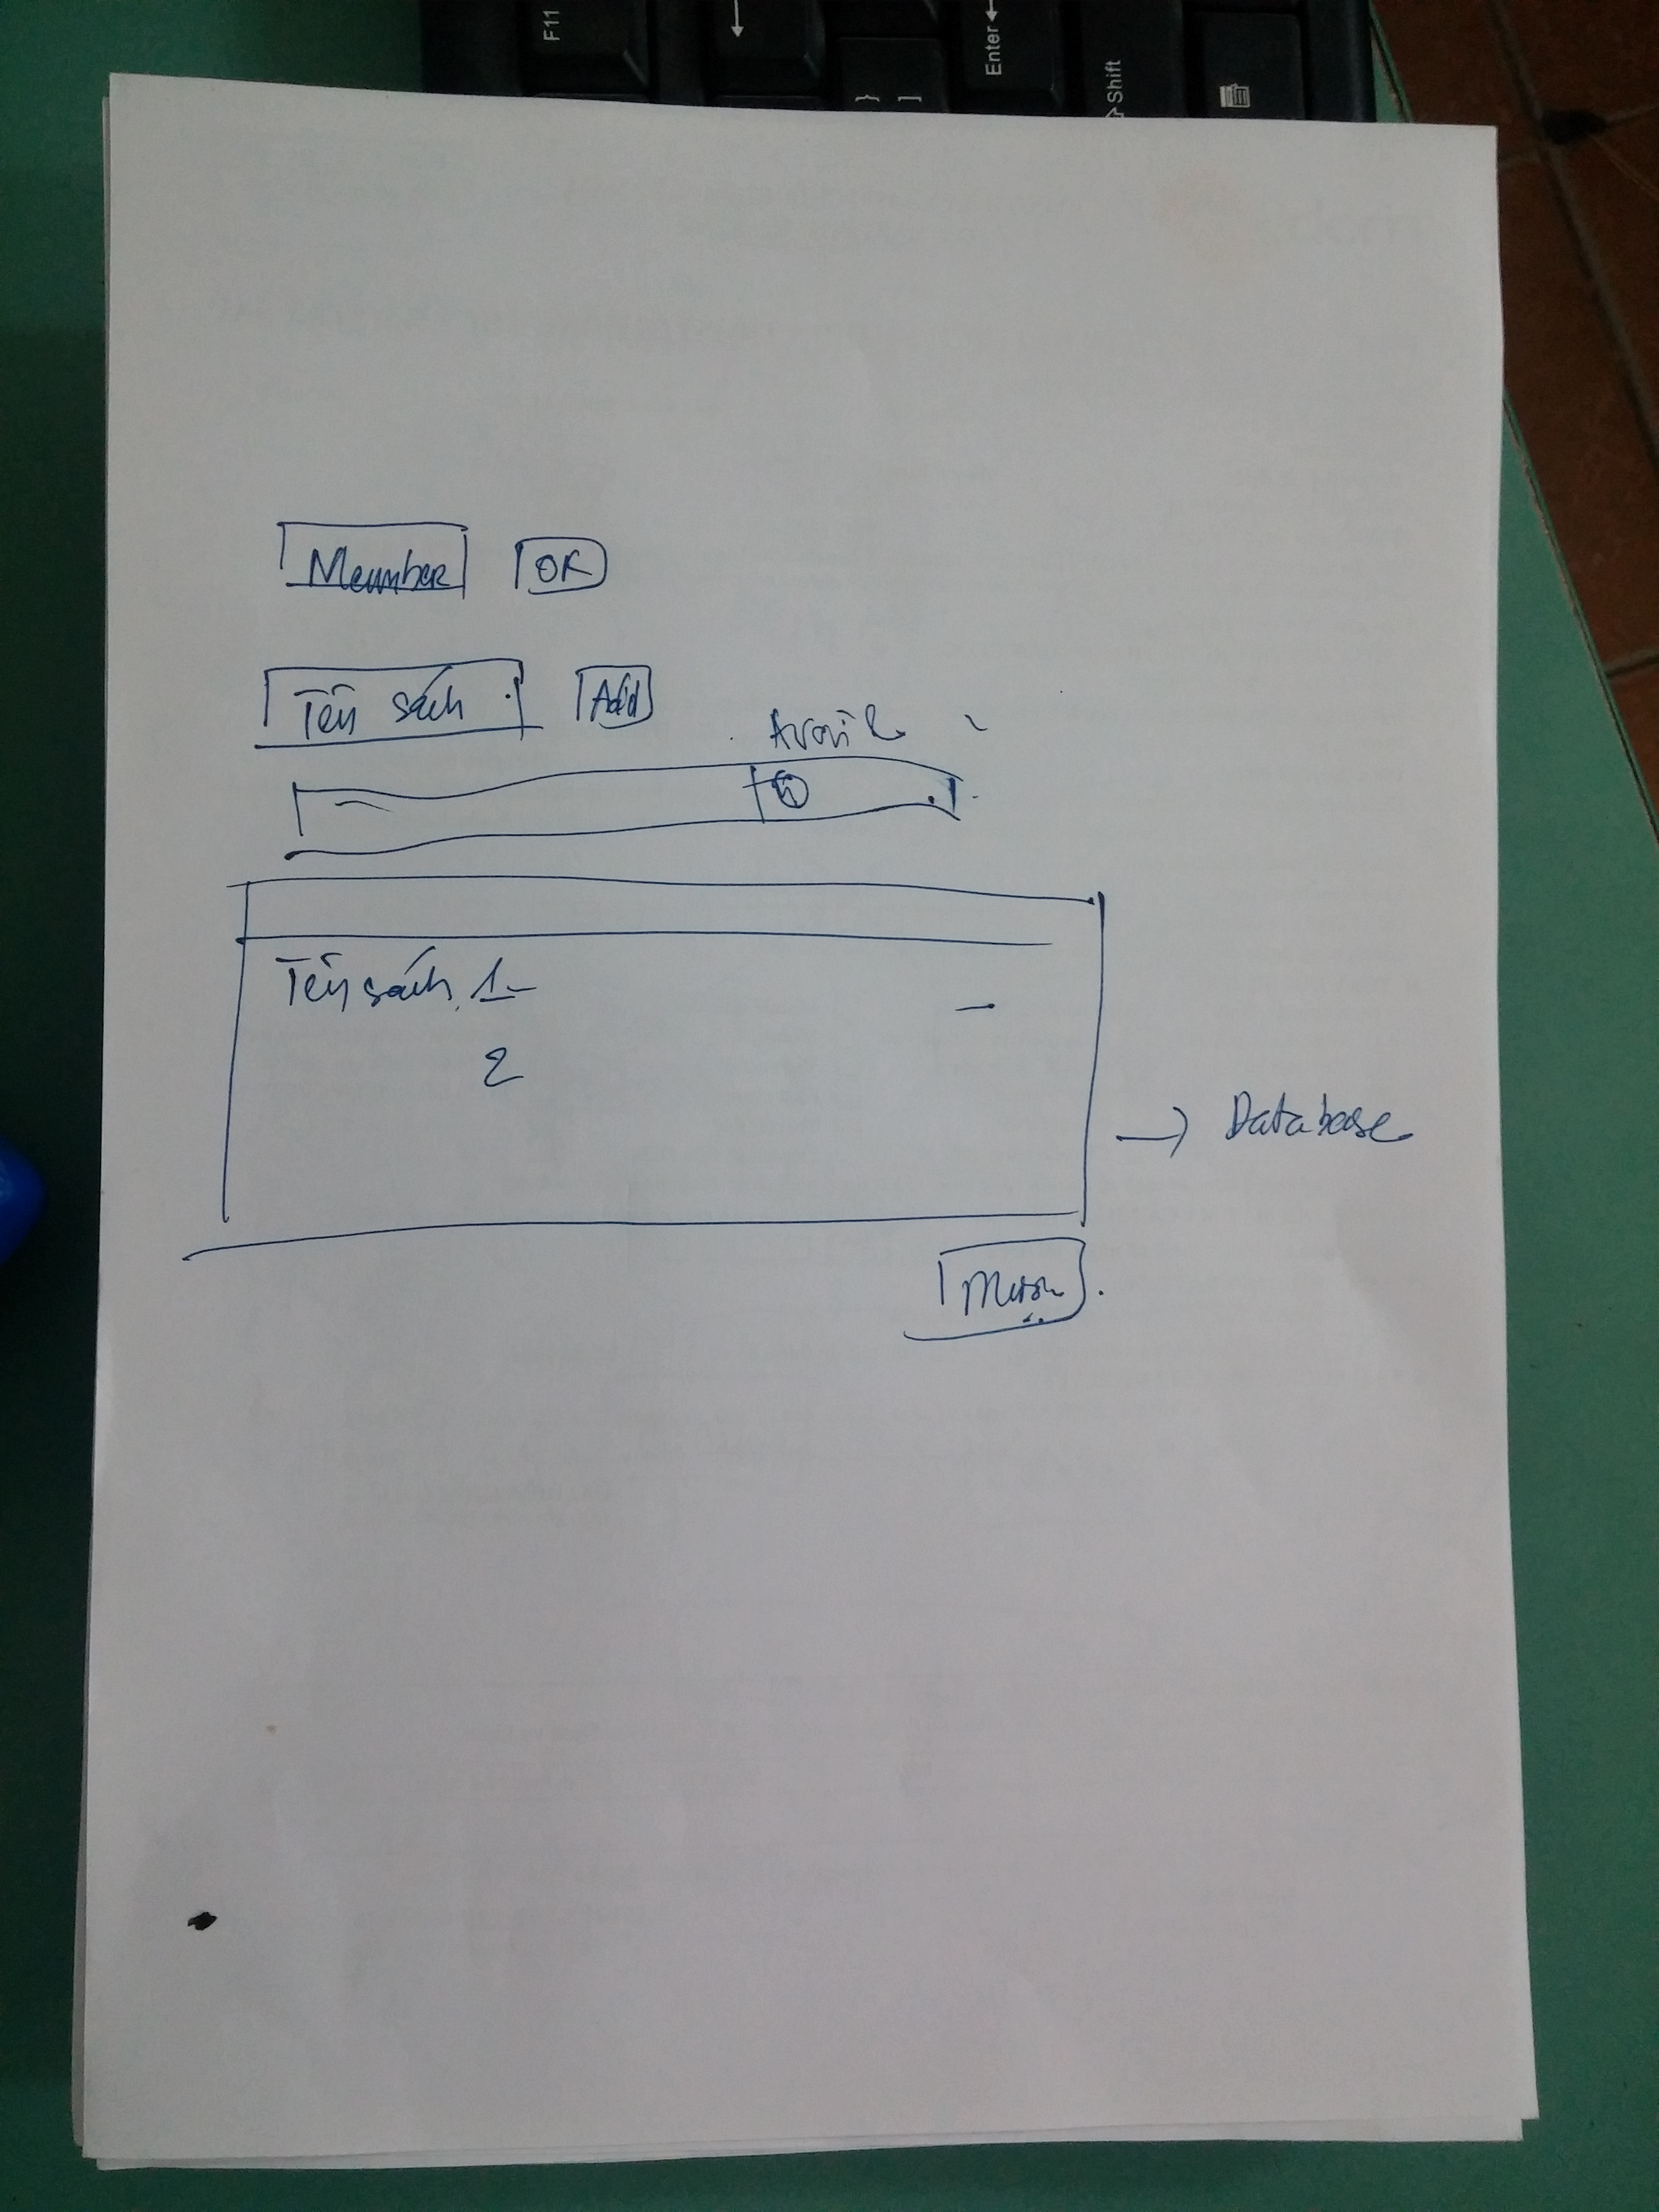 F11
Enter
Shift
} ]
Member OK
Tên sách Add
Avail
Tên sách 1
2
Database
Mượn